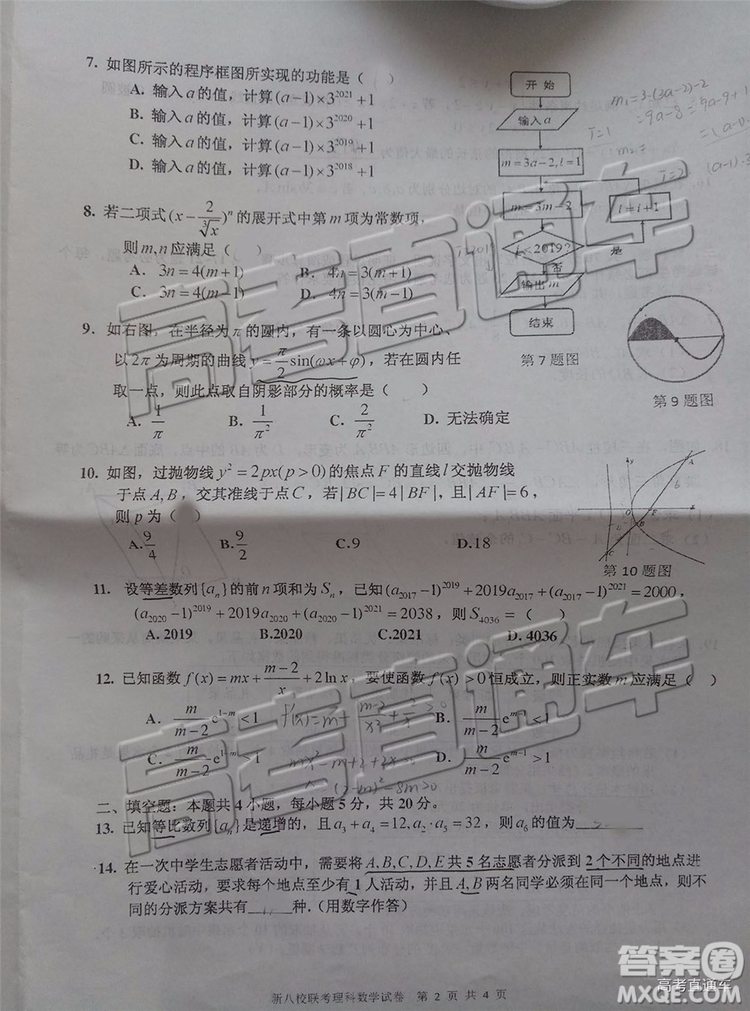 7. 如图所示的程序框图所实现的功能是（    ）
A. 输入 a 的值，计算 (a−1)×3^2021+1
B. 输入 a 的值，计算 (a−1)×3^2020+1
C. 输入 a 的值，计算 (a−1)×3^2019+1
D. 输入 a 的值，计算 (a−1)×3^2018+1
开 始
输入 a
m=3a−2, i=1
m=3m−2
i=i+1
i<2019?
是
否
输出 m
结束
第 7 题图
8. 若二项式 (x − 2/∛x)^n 的展开式中第 m 项为常数项，
则 m,n 应满足（    ）
A. 3n=4(m+1)    B. 4n=3(m+1)
C. 3n=4(m−1)    D. 4n=3(m−1)
9. 如右图，在半径为 π 的圆内，有一条以圆心为中心、
以 2π 为周期的曲线 y=π/2 sin(ωx+φ)，若在圆内任
取一点，则此点取自阴影部分的概率是（    ）
A. 1/π    B. 1/π²    C. 2/π²    D. 无法确定
第 9 题图
10. 如图，过抛物线 y²=2px(p>0) 的焦点 F 的直线 l 交抛物线
于点 A,B，交其准线于点 C，若 |BC|=4|BF|，且 |AF|=6，
则 p 为（    ）
A. 9/4    B. 9/2    C. 9    D. 18
第 10 题图
11. 设等差数列{a_n}的前 n 项和为 S_n，已知 (a_2017−1)^2019+2019a_2017+(a_2017−1)^2021=2000，
(a_2020−1)^2019+2019a_2020+(a_2020−1)^2021=2038，则 S_4036=（    ）
A. 2019    B. 2020    C. 2021    D. 4036
12. 已知函数 f(x)=mx+(m−2)/x+2ln x，要使函数 f(x)>0 恒成立，则正实数 m 应满足（    ）
A. m/(m−2) e^(1−m)<1    B. m/(m−2) e^(m−1)<1
C. m/(m−2) e^(1−m)>1    D. m/(m−2) e^(m−1)>1
二、填空题：本题共 4 小题，每小题 5 分，共 20 分。
13. 已知等比数列{a_n}是递增的，且 a_3+a_4=12, a_2·a_5=32，则 a_6 的值为
14. 在一次中学生志愿者活动中，需要将 A,B,C,D,E 共 5 名志愿者分派到 2 个不同的地点进
行爱心活动，要求每个地点至少有 1 人活动，并且 A,B 两名同学必须在同一地点，则不
同的分派方案共有    种.（用数字作答）
新八校联考理科数学试卷 第 2 页 共 4 页
高考直通车
高考直通车
答案圈
高考直通车
MXQE.COM